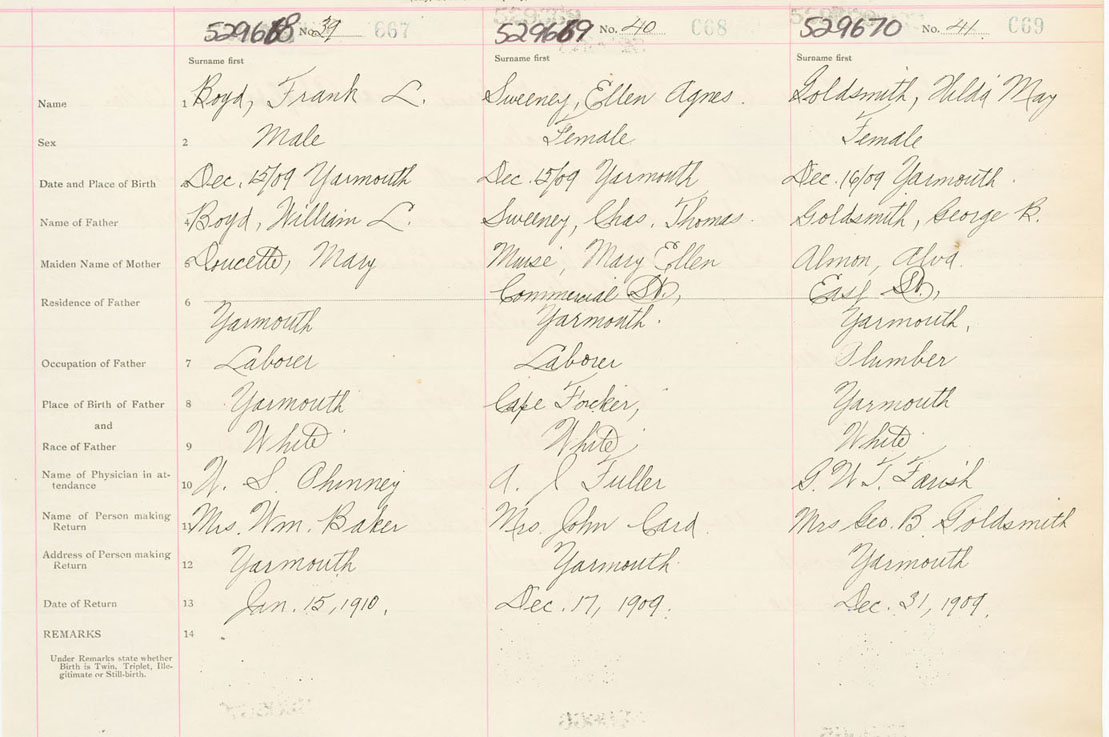 529668 No. 39 667 529669 No. 40 C68 529670 No. 41 C69
Surname first Surname first Surname first
Name 1 Boyd, Frank L. Sweeney, Ellen Agnes. Goldsmith, Hilda May
Sex 2 Male Female Female
Date and Place of Birth 3 Dec. 15/09 Yarmouth Dec. 15/09 Yarmouth Dec. 16/09 Yarmouth.
Name of Father 4 Boyd, William L. Sweeney, Chas. Thomas. Goldsmith, George B.
Maiden Name of Mother 5 Doucette, Mary Muise, Mary Ellen Almon, Alva.
Commercial St., East St.,
Residence of Father 6 Yarmouth Yarmouth. Yarmouth,
Occupation of Father 7 Laborer Laborer Plumber
Place of Birth of Father 8 Yarmouth Cape Yarmouth
and
Race of Father 9 White White White
Name of Physician in at-
tendance 10 W. S. Phinney A. J. Fuller G. W. T. Farish
Name of Person making
Return 11 Mrs. Wm. Baker Mrs. John Card. Mrs Geo. B. Goldsmith
Address of Person making
Return 12 Yarmouth Yarmouth Yarmouth
Date of Return 13 Jan. 15, 1910, Dec. 17, 1909. Dec. 31, 1909,
REMARKS 14
Under Remarks state whether
Birth is Twin, Triplet, Ille-
gitimate or Still-birth.